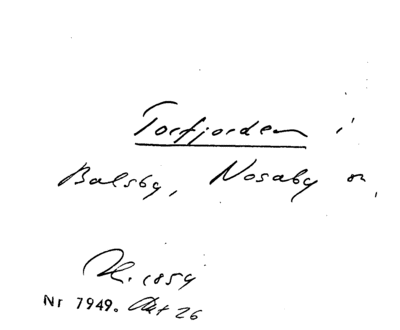 Torfjorden i
Balsby, Nosaby sn,
1859
Nr 7949. Akt 26